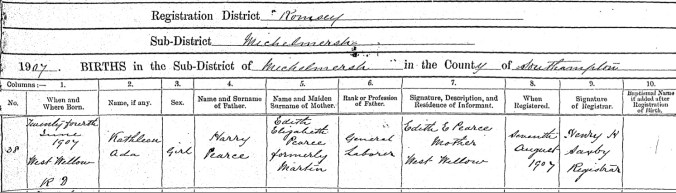 Registration District Romsey
Sub-District Michelmersh
1907. BIRTHS in the Sub-District of Michelmersh in the County of Southampton
Columns :— 1. 2. 3. 4. 5. 6. 7. 8. 9. 10.
No. When and Where Born. Name, if any. Sex. Name and Surname of Father. Name and Maiden Surname of Mother. Rank or Profession of Father. Signature, Description, and Residence of Informant. When Registered. Signature of Registrar. Baptismal Name if added after Registration of Birth.
38
Twenty fourth
June
1907
West Wellow
R D
Kathleen
Ada
Girl
Harry
Pearce
Edith
Elizabeth
Pearce
formerly
Martin
General
Laborer
Edith E Pearce
Mother
West Wellow
Seventh
August
1907
Henry H
Saxby
Registrar